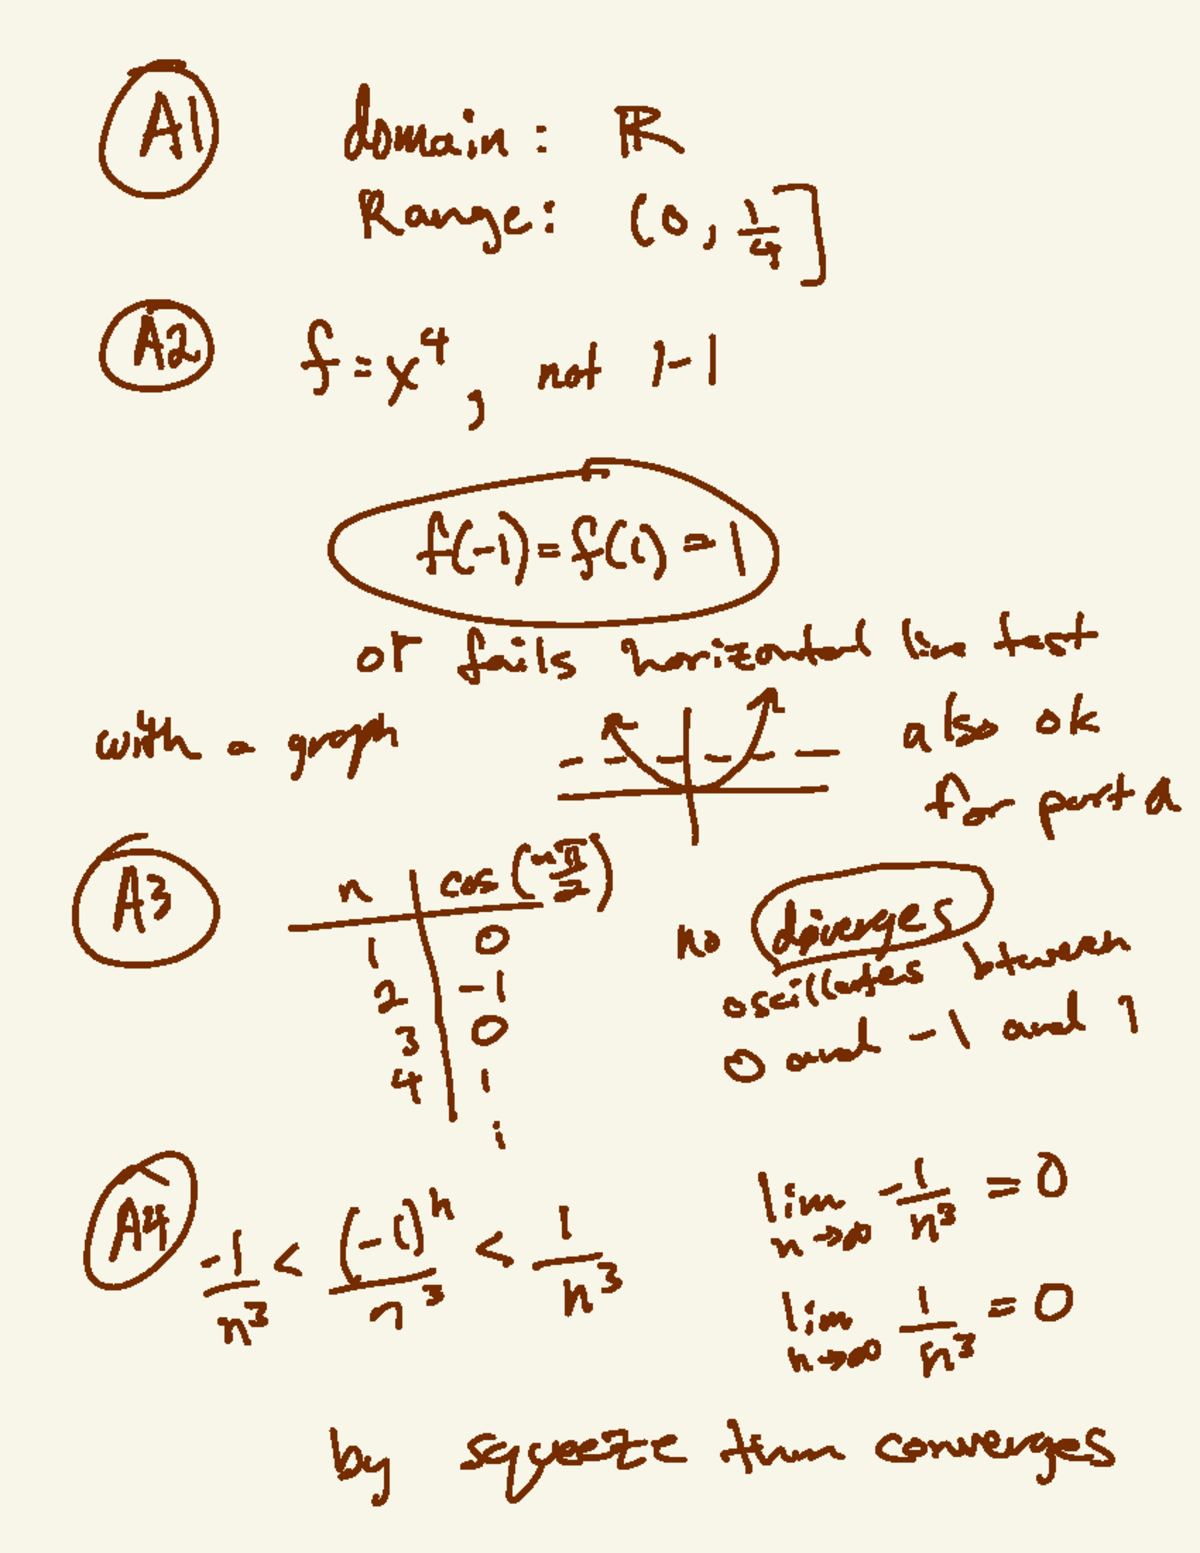 A1 domain: ℝ
Range: (0, 1/4]
A2 f = x^4, not 1-1
f(-1) = f(1) = 1
or fails horizontal line test
with a graph also ok
for part a
A3 n cos(nπ/2)
1 0
2 -1
3 0
4 1
⋮
no diverges
oscillates btween
0 and -1 and 1
A4 -1/n^3 < (-1)^n/n^3 < 1/n^3
lim n→∞ -1/n^3 = 0
lim n→∞ 1/n^3 = 0
by squeeze thm converges